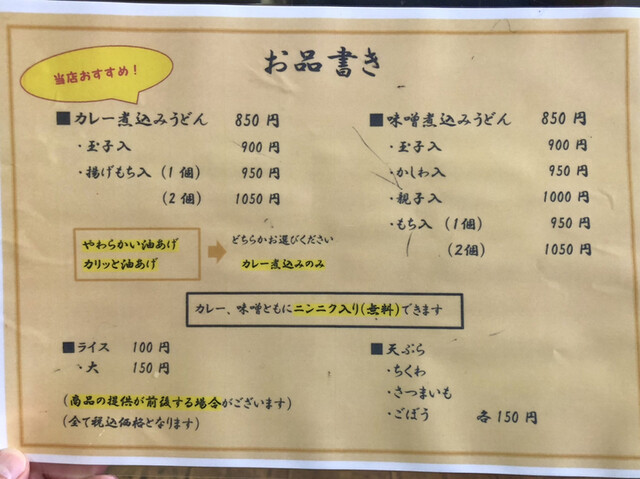 お品書き
当店おすすめ！
■カレー煮込みうどん 850円
・玉子入 900円
・揚げもち入（1個） 950円
（2個） 1050円
やわらかい油あげ
カリッと油あげ
どちらかお選びください
カレー煮込みのみ
■味噌煮込うどん 850円
・玉子入 900円
・かしわ入 950円
・親子入 1000円
・もち入（1個） 950円
（2個） 1050円
カレー、味噌ともにニンニク入り(無料)できます
■ライス 100円
・大 150円
（商品の提供が前後する場合がございます）
（全て税込価格となります）
■天ぷら
・ちくわ
・さつまいも
・ごぼう 各150円